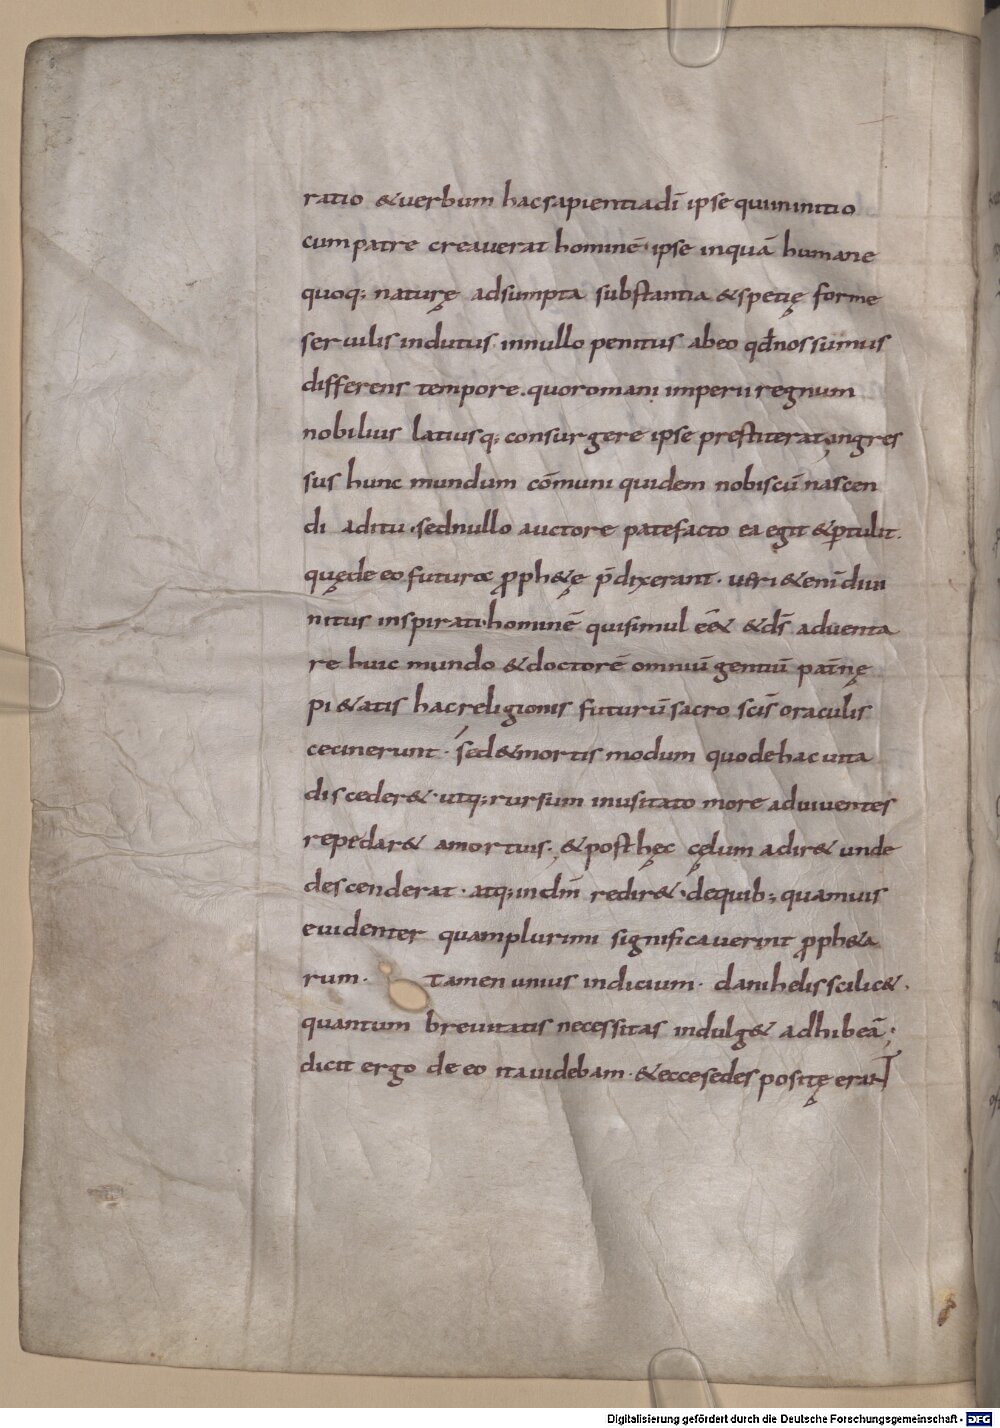 ratio & uerbum hac sapientia dī ipse qui in initio
cum patre creauerat hominē· ipse inquā humane
quoq; naturę adsumpta substantia & spetię forme
seruilis indutus· in nullo penitus ab eo qđ nos sumus
differens tempore. quo romani imperii regnum
nobilius latiusq; consurgere ipse prestiterat, ingres
sus hunc mundum cōmuni quidem nobiscū nascen
di aditu· sed nullo auctore patefacto ea egit & ꝑtulit.
quę de eo futuros ꝓph&ę p̄dixerant· ueri &enī diui
nitus inspirati· hominē qui simul eē& & ds̄ aduenta
re huic mundo & doctorē omniū gentiū pat̄nę
pi&atis hac religionis futurū sacro scīs oraculis
cecinerunt· sed & mortis modum quo de hac uita
disceder&· utq; rursum inusitato more ad uiuentes
repedar& a mortuis· & post hęc cęlum adir& unde
descenderat· atq; in dm̄ redir&· de quib; quamuis
euidenter quamplurimi significauerint ꝓph&a
rum· tamen unius indicium· danihelis scilic&·
quantum breuitatis necessitas indulg& adhibeā;
dicit ergo de eo ita uidebam· & ecce sedes positę erant
Digitalisierung gefördert durch die Deutsche Forschungsgemeinschaft - DFG